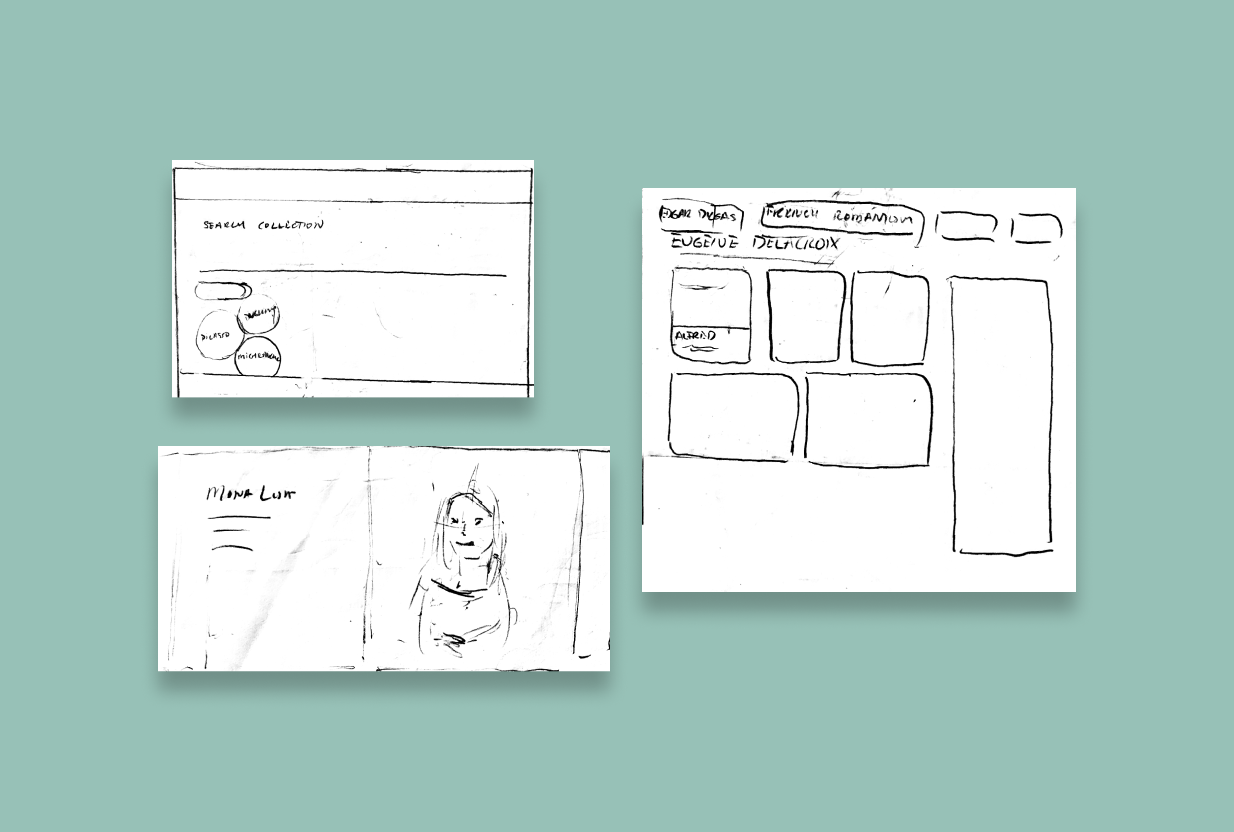 SEARCH COLLECTION
PICASSO
MONA LISA
EDGAR DEGAS
FRENCH ROMANTICISM
EUGÈNE DELACROIX
ALFRED